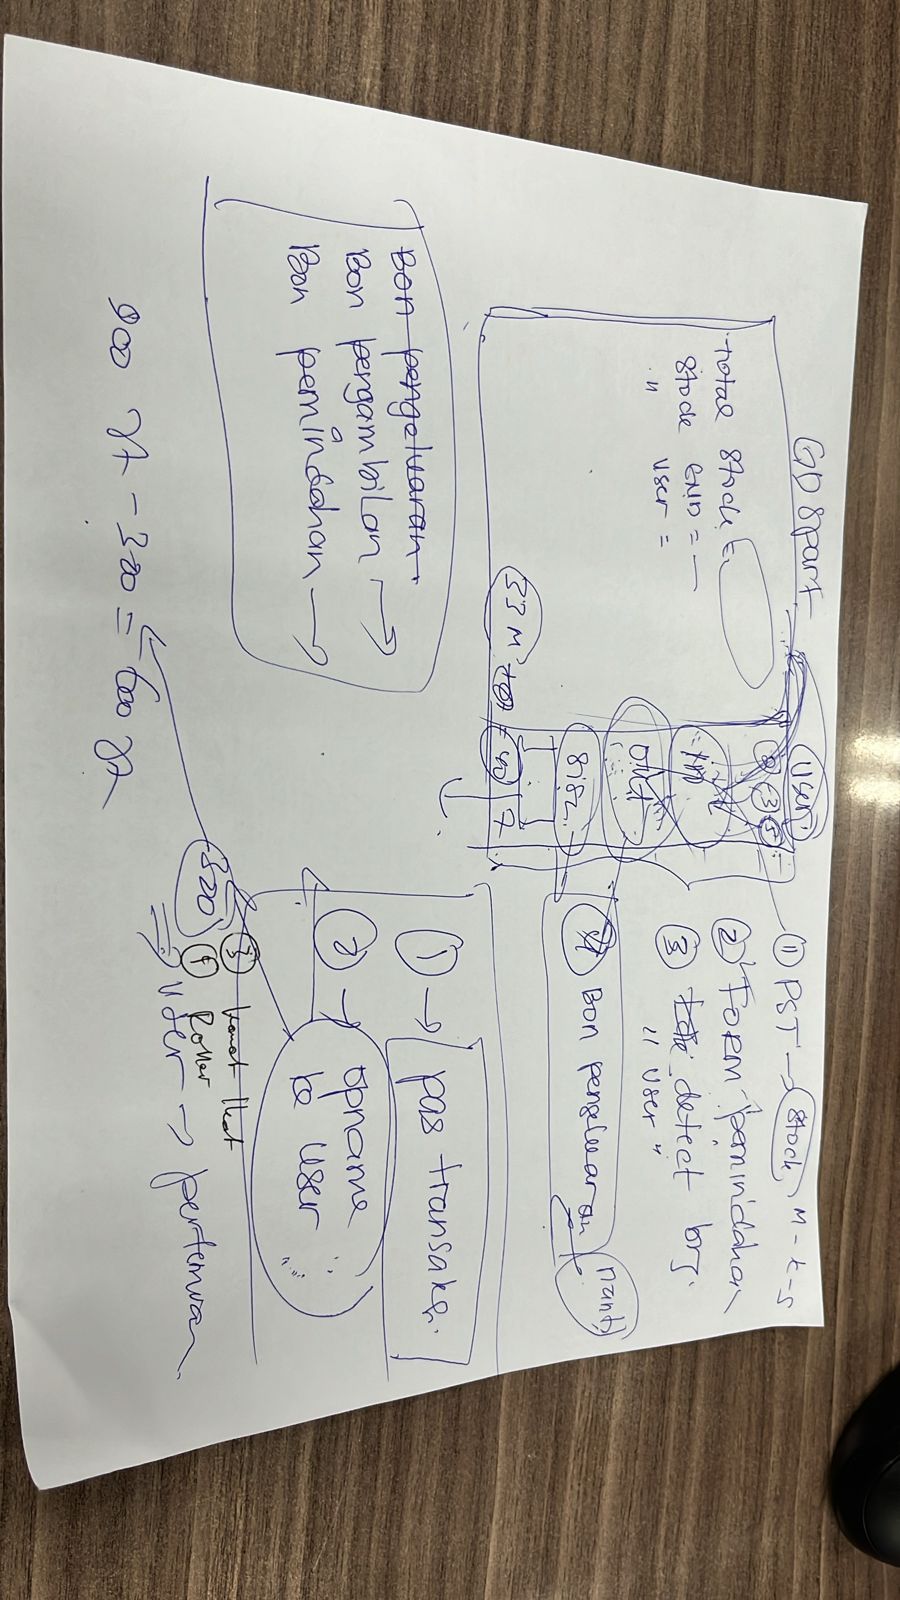 GD Spart
user
total stock =
stock GND = —
" user =
-3
in
out
sisa
33 M
= 40
7
① PST → stock M - k - s
② FORM pemindahan
③ detect brg.
" user "
④ Bon pengeluaran
nanti
Bon pengeluaran
Bon pengambilan →
Bon pemindahan →
① → pas transaksi
② → opname ke user
③
④ Roller
⇒ user → pertemuan
320
900 jt - 300 = 600 jt